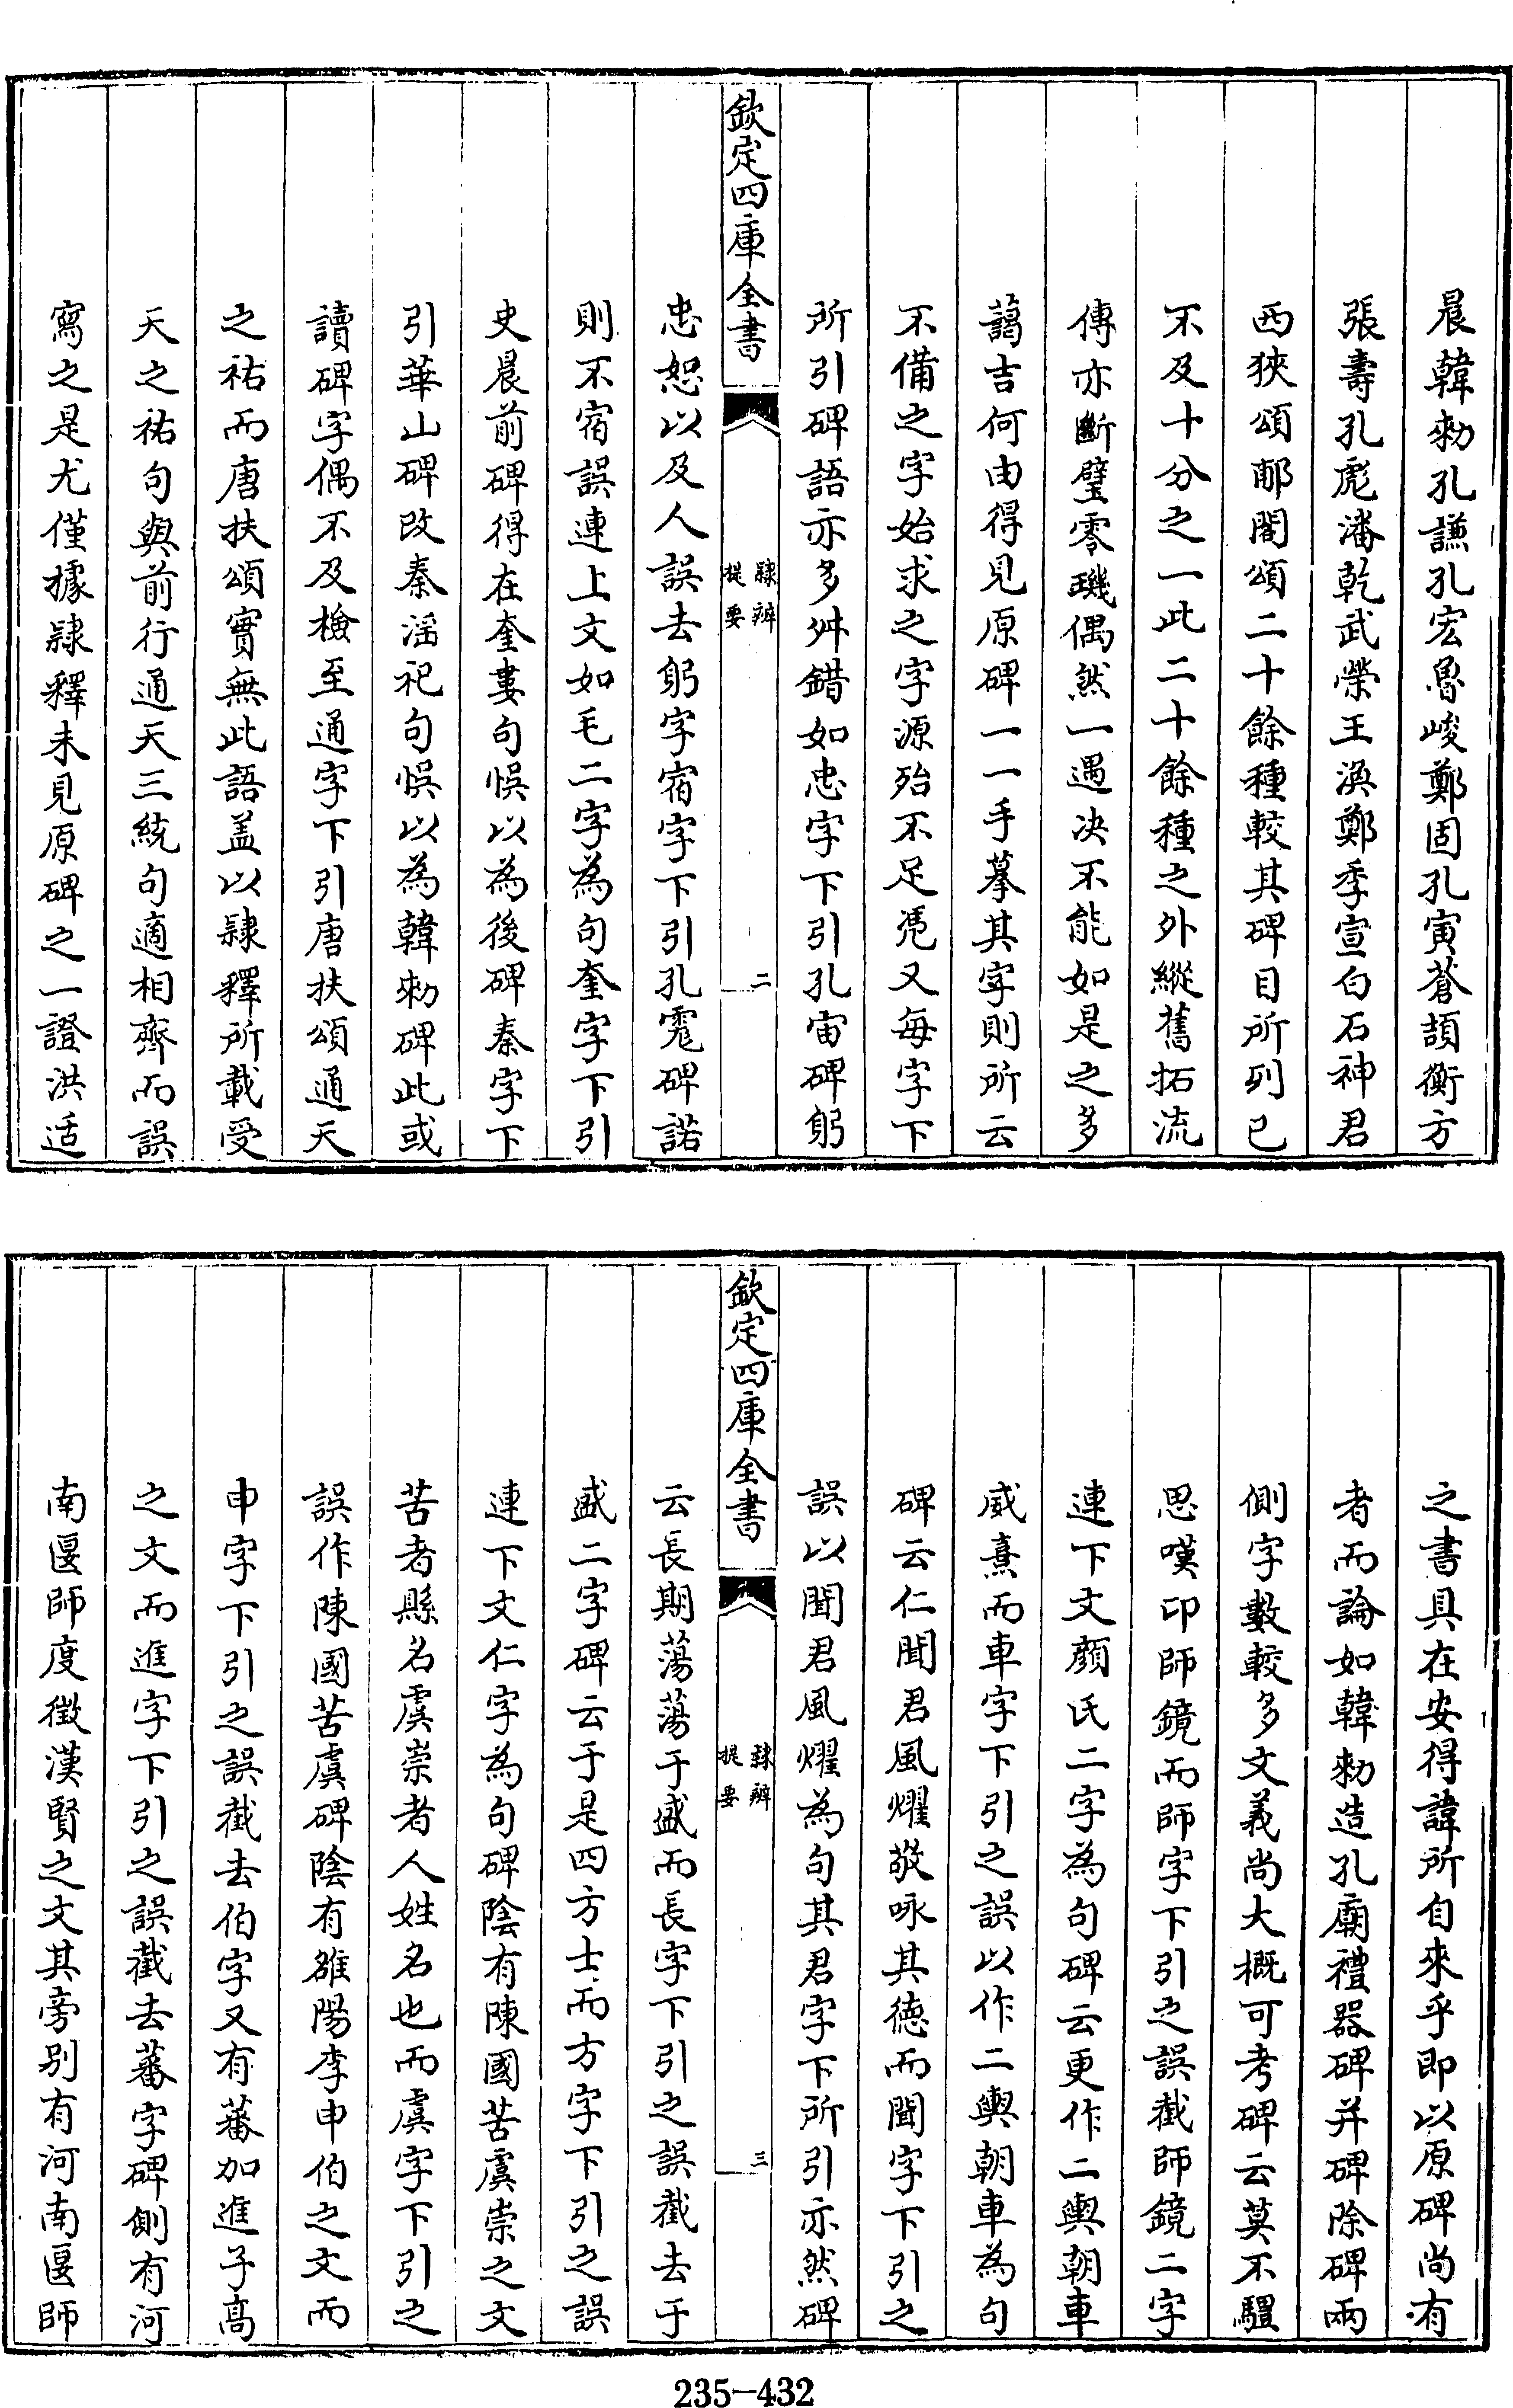 晨韓勑孔謙孔宏魯峻鄭固孔寅蒼頡衡方
張壽孔彪潘乾武榮王渙鄭季宣白石神君
西狹頌郙閣頌二十餘種較其碑目所列已
不及十分之一此二十餘種之外縱舊拓流
傳亦斷璧零璣偶然一遇决不能如是之多
藹吉何由得見原碑一一手摹其字則所云
不備之字始求之字源殆不足凭又每字下
所引碑語亦多舛錯如忠字下引孔宙碑躬
欽定四庫全書
隸辨
提要
二
忠恕以及人誤去躬字宿字下引孔寵碑諾
則不宿誤連上文如毛二字為句奎字下引
史晨前碑得在奎婁句悞以為後碑秦字下
引華山碑改秦滛祀句悞以為韓勑碑此或
讀碑字偶不及檢至通字下引唐扶頌通天
之祐而唐扶頌實無此語盖以隸釋所載受
天之祐句與前行通天三統句適相齊而誤
寫之是尤僅據隸釋未見原碑之一證洪适
之書具在安得諱所自來乎即以原碑尚有
者而論如韓勑造孔廟禮器碑并碑陰碑兩
側字數較多文義尚大概可考碑云莫不驅
思嘆卬師鏡而師字下引之誤截師鏡二字
連下文顔氏二字為句碑云更作二輿朝車
威熹而車字下引之誤以作二輿朝車為句
碑云仁聞君風燿敬咏其德而聞字下引之
誤以聞君風燿為句其君字下所引亦然碑
欽定四庫全書
隸辨
提要
三
云長期蕩蕩于盛而長字下引之誤截去于
盛二字碑云于是四方士而方字下引之誤
連下文仁字為句碑陰有陳國苦虞崇之文
苦者縣名虞崇者人姓名也而虞字下引之
誤作陳國苦虞碑陰有雒陽李申伯之文而
申字下引之誤截去伯字又有蕃加進子高
之文而進字下引之誤截去蕃字碑側有河
南匽師度徵漢賢之文其旁别有河南匽師
235-432